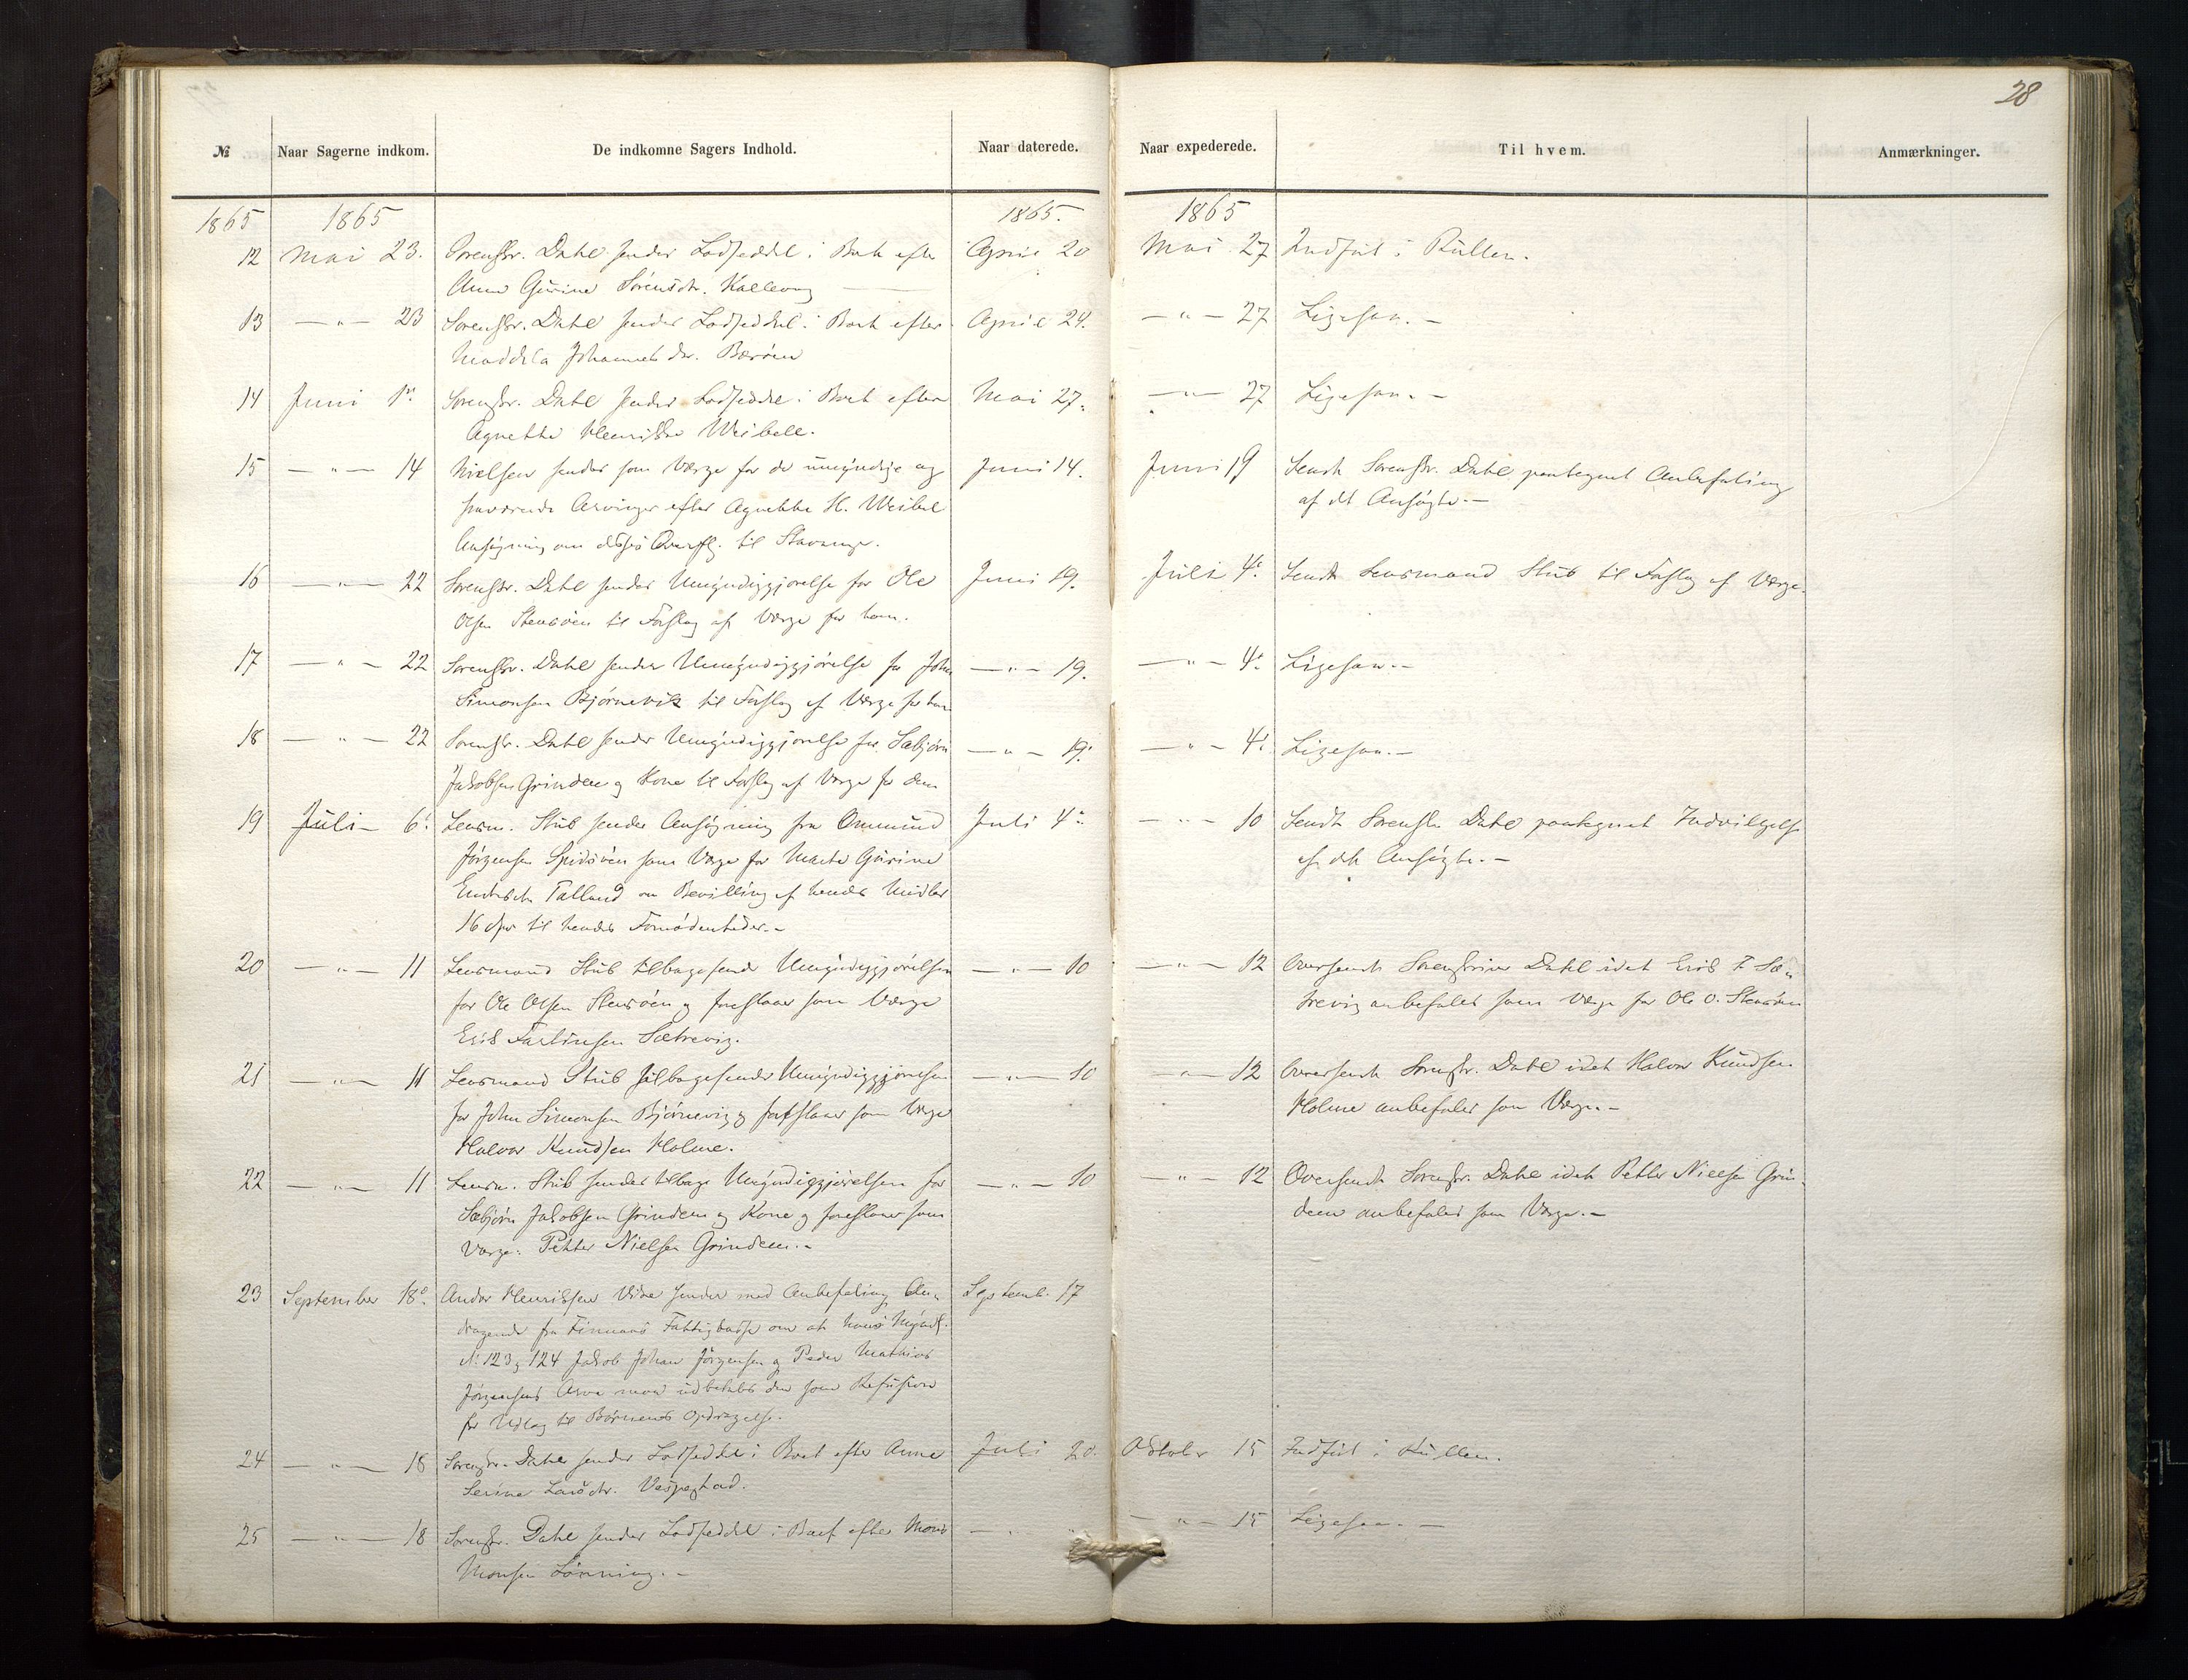 28
№ Naar Sagerne indkom. De indkomne Sagers Indhold. Naar daterede. Naar expederede. Til hvem. Anmærkninger.
1865 1865 1865. 1865
12 Mai 23. Sorenskr. Dahl sender Lodseddel i Boet efter April 20 Mai 27 Indført i Rullen.
Anna Gurine Sørensdtr. Kallevag
13 — " — 23 Sorenskr. Dahl sender Lodseddel i Boet efter April 24. — " — 27 Ligesaa. —
Maddela Johannesdtr. Børøen
14 Juni 1ste Sorenskr. Dahl sender Lodseddel i Boet efter Mai 27. — " — 27 Ligesaa. —
Agnethe Henrikke Weibell.
15 — " — 14 Nielsen sender som Værge for de umyndige og Juni 14. Juni 19 Sendt Sorenskr. Dahl paategnet Anbefaling
fraværende Arvinger efter Agnethe H. Weibel af det Ansøgte. —
Ansøgning om disses til Stavanger.
16 — " — 22 Sorenskr. Dahl sender Umyndiggjørelse for Ole Juni 19. Juli 4de Sendt Lensmand Stub til Forslag af Værge.
Olsen Stensøen til Forslag af Værge for ham.
17 — " — 22 Sorenskr. Dahl sender Umyndiggjørelse for John — " — 19. — " — 4de Ligesaa. —
Simonsen Bjørnevik til Forslag af Værge for ham
18 — " — 22 Sorenskr. Dahl sender Umyndiggjørelse for Sæbjørn — " — 19. — " — 4de Ligesaa. —
Jakobsen Grindem og Kone til Forslag af Værge for dem
19 Juli 6te Lensm. Stub sender Ansøgning fra Ommund Juli 4de — " — 10 Sendt Sorenskr. Dahl paategnet Indvilgelse
Jørgensen Spidsøen som Værge for Marta Gurine af det Ansøgte. —
Endresdtr. Talland om Bevilling af hendes Midler
16 Spd til hendes Fornødenheder. —
20 — " — 11 Lensmand Stub tilbagesender Umyndiggjørelsen — " — 10 — " — 12 Oversendt Sorenskriver Dahl idet Erik T. Sæ-
for Ole Olsen Stensøen og foreslaaer som Værge trevig anbefales som Værge for Ole O. Stensøen
Erik Sætrevig.
21 — " — 11 Lensmand Stub tilbagesender Umyndiggjørelsen — " — 10 — " — 12 Oversendt Sorenskr. Dahl idet Halvor Knudsen
for John Simonsen Bjørnevig og foreslaaer som Værge Holme anbefales som Værge. —
Halvor Knudsen Holme.
22 — " — 11 Lensm. Stub sender tilbage Umyndiggjørelsen for — " — 10 — " — 12 Oversendt Sorenskr. Dahl idet Petter Nielsen Grin-
Sæbjørn Jakobsen Grindem og Kone og foreslaaer som dem anbefales som Værge. —
Værge: Petter Nielsen Grindem. —
23 September 18de Andor Henriksen Vike sender med Anbefaling An- Septemb. 17
dragende fra Finnaas Fattigkasse om at hans Mynd.
No 123 & 124 Jakob Johan Jørgensen og Peder Mathias
Jørgensens Arve maa udbetales den som Refusion
for Udlæg til Børnenes Opdragelse.
24 — " — 18 Sorenskr. Dahl sender Lodseddel i Boet efter Anne Juli 20. Oktober 15 Indført i Rullen.
Serine Larsdtr. Vespestad.
25 — " — 18 Sorenskr. Dahl sender Lodseddel i Boet efter Mons — " — " — " — 15 Ligesaa. —
Monsen Lønning. —